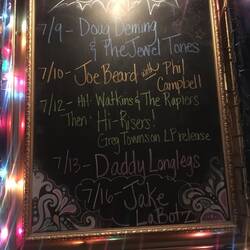 7/9- Doug Deming
& The Jewel Tones
7/10- Joe Beard with Phil
Campbell
7/12- Hi! Watkins & The Rapiers
Then: Hi-Risers!
Greg Townson LP release
7/13- Daddy Longlegs
7/16- Jake
LaBotz